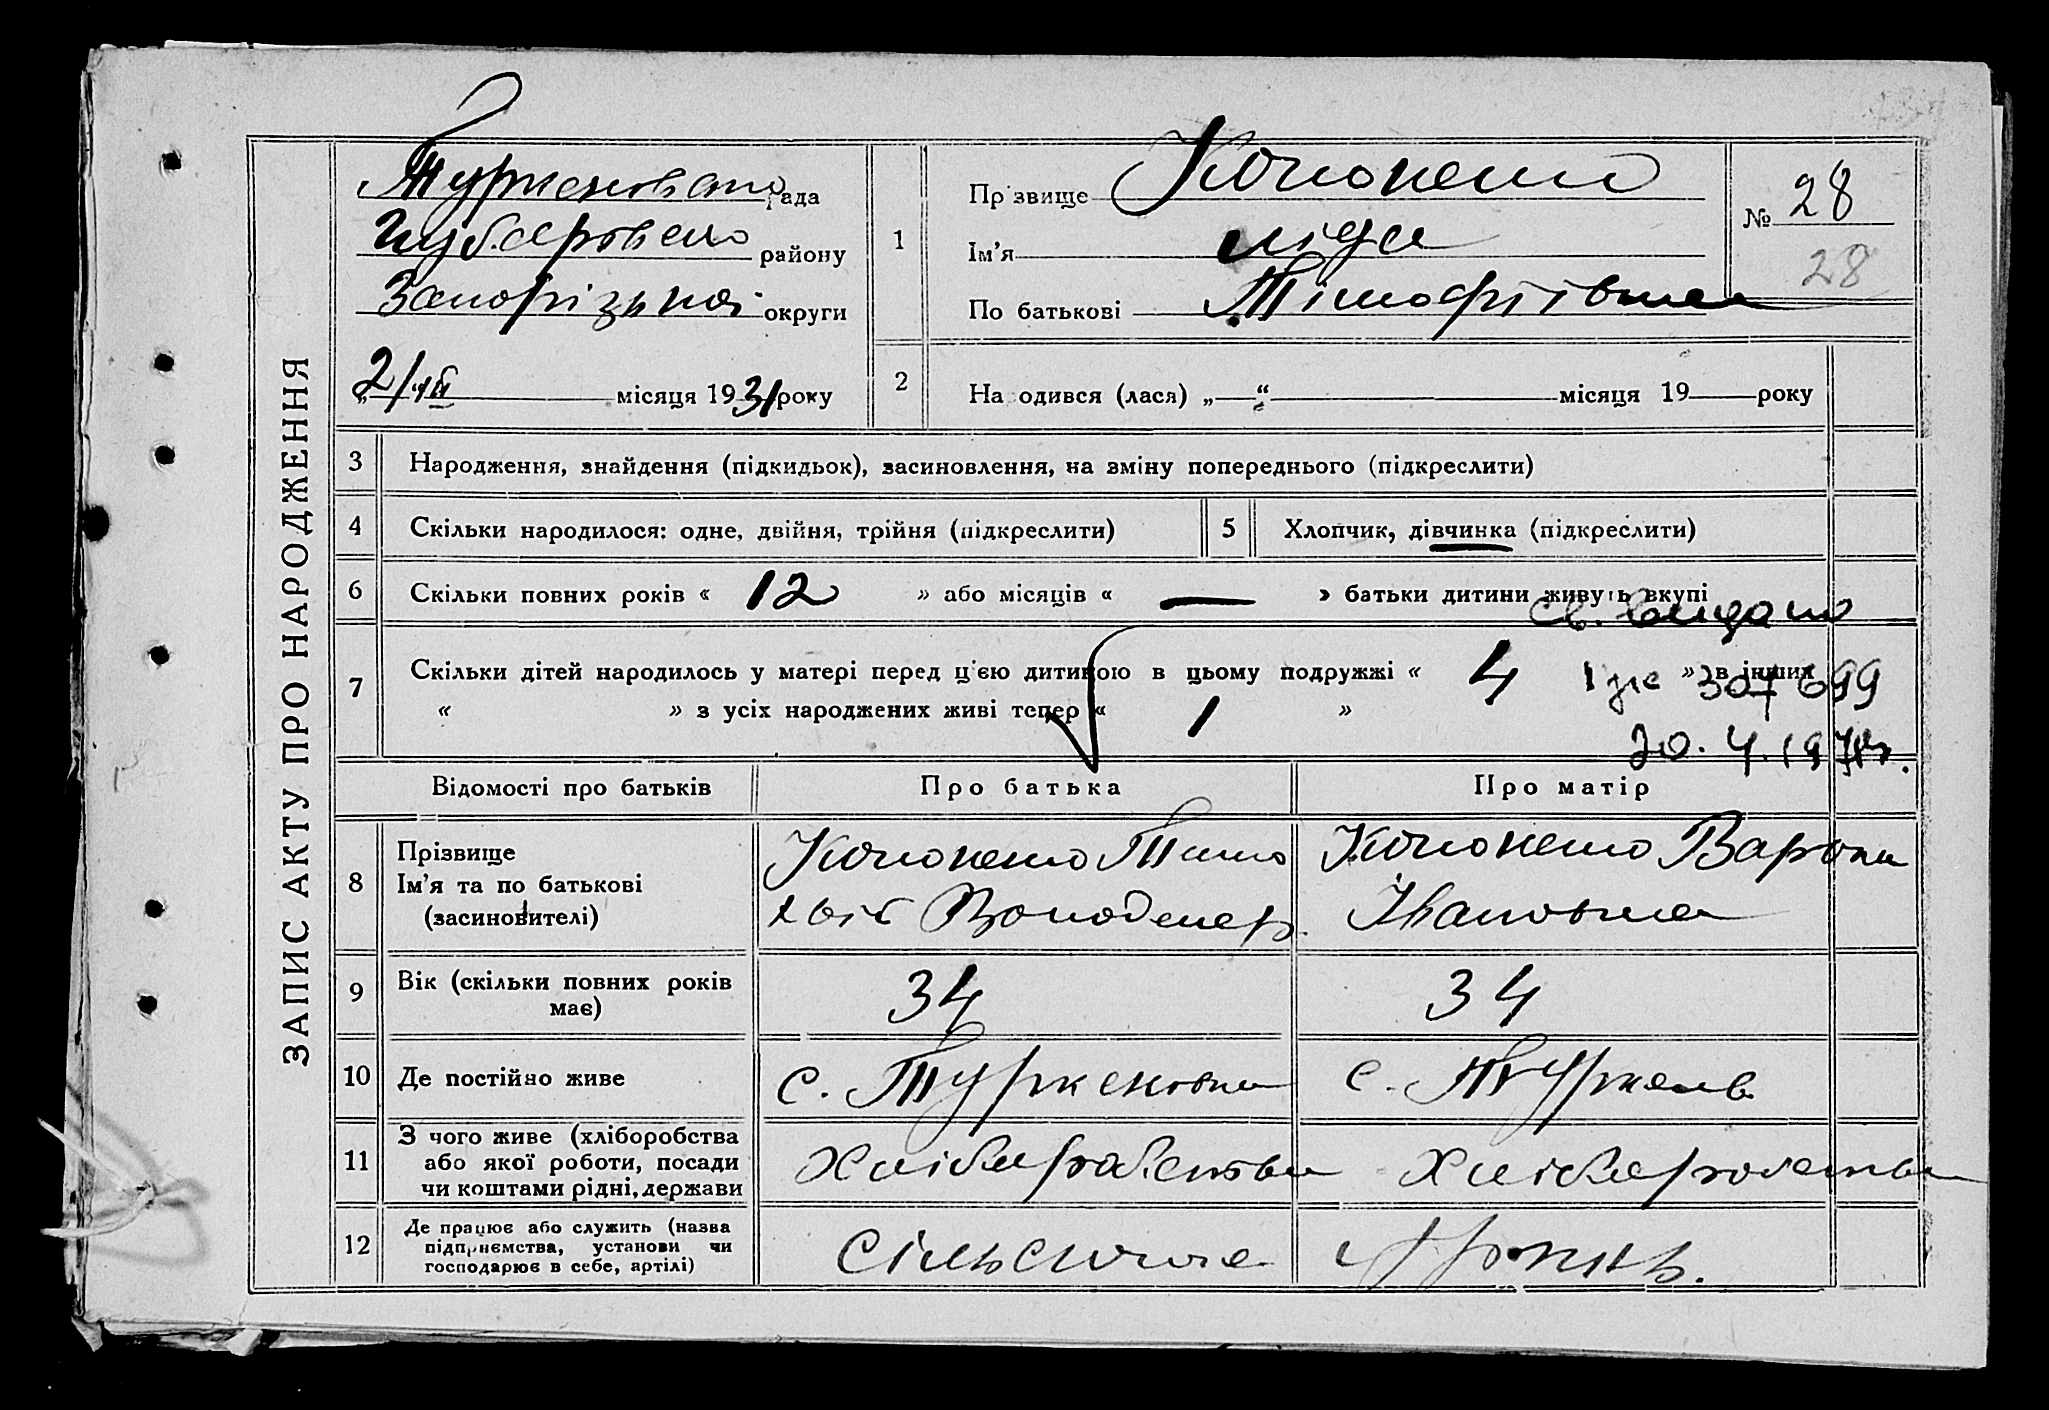 ЗАПИС АКТУ ПРО НАРОДЖЕННЯ
рада
району
Запорізької округи
2/VII місяця 1931 року
1
Прізвище
Ім'я Ліда
По батькові Тімофіївна
№ 28
28
2 На одився (лася) „ “ місяця 19 року
3 Народження, знайдення (підкидьок), засиновлення, на зміну попереднього (підкреслити)
4 Скільки народилося: одне, двійня, трійня (підкреслити)
5 Хлопчик, дівчинка (підкреслити)
6 Скільки повних років « 12 » або місяців « — » батьки дитини живуть вкупі
св. видано
7 Скільки дітей народилось у матері перед ц'єю дитиною в цьому подружжі « 4 » в інших
307699
« » з усіх народжених живі тепер « 1 »
20.4.197
Відомості про батьків
Про батька
Про матір
8 Прізвище
Ім'я та по батькові
(засиновителі)
Івановна
9 Вік (скільки повних років має)
34
34
10 Де постійно живе
с. Туркеновка
с. Туркенов
11 З чого живе (хліборобства
або якої роботи, посади
чи коштами рідні, держави
12 Де працює або служить (назва
підприємства, установи чи
господарює в себе, артілі)